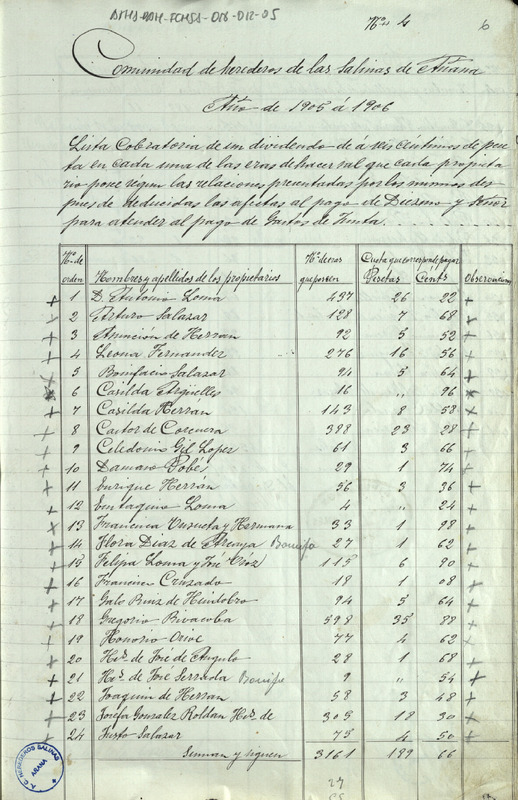 ATHA-DAH-FCHSA-018-012-05
Nº 4
6
Comunidad de herederos de las Salinas de Añana
Año de 1905 á 1906
Lista Cobratoria de un dividendo de á seis céntimos de pese
ta en cada una de las eras de hacer sal que cada propieta
rio posee según las relaciones presentadas por los mismos des
pues de deducidas las afectas al pago de Diezmo y
para atender al pago de Gastos de Junta.
Nº de orden Nombres y apellidos de los propietarios Nº de eras que poseen Cuota que corresponde pagar Pesetas Cénts Observaciones
+ 1 D. Antonio Loma 437 26 22 +
+ 2 Arturo Salazar 128 7 68 +
+ 3 Asunción de Herran 92 5 52 +
+ 4 Leona Fernandez 276 16 56 +
+ 5 Bonifacio Salazar 94 5 64 +
+ 6 Casilda Argüelles 16 " 96 +
+ 7 Casilda Herrán 143 8 58 +
+ 8 Castor de Corcuera 388 23 28 +
+ 9 Celedonio Gil Lopez 61 3 66 +
+ 10 Damaso Pobes 29 1 74 +
+ 11 Enrique Herrán 56 3 36 +
+ 12 Eustaquio Loma 4 " 24 +
+ 13 Francisca Urrueta y Hermana 33 1 98 +
+ 14 Flora Diaz de Arcaya Bonifo 27 1 62 +
+ 15 Felipa Loma y José Oróz 115 6 90 +
+ 16 Francisco Cruzado 18 1 08 +
+ 17 Galo Ruiz de Huidobro 94 5 64 +
+ 18 Gregorio Bivacoba 598 35 88 +
+ 19 Honorio Orive 77 4 62 +
+ 20 Hos de José de Angulo 28 1 68 +
+ 21 Hos de José Serrada Bonifo 9 " 54 +
+ 22 Joaquin de Herran 58 3 48 +
+ 23 Josefa Gonzalez Roldan Hos de 305 18 30 +
+ 24 Justo Salazar 75 4 50 +
Suman y siguen 3161 189 66
27
A. C. HEREDEROS SALINAS
AÑANA